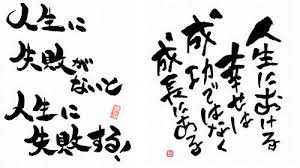 人生に
失敗が
ないと
人生に
失敗する!
人生における
幸せは
成功ではなく
成長にある